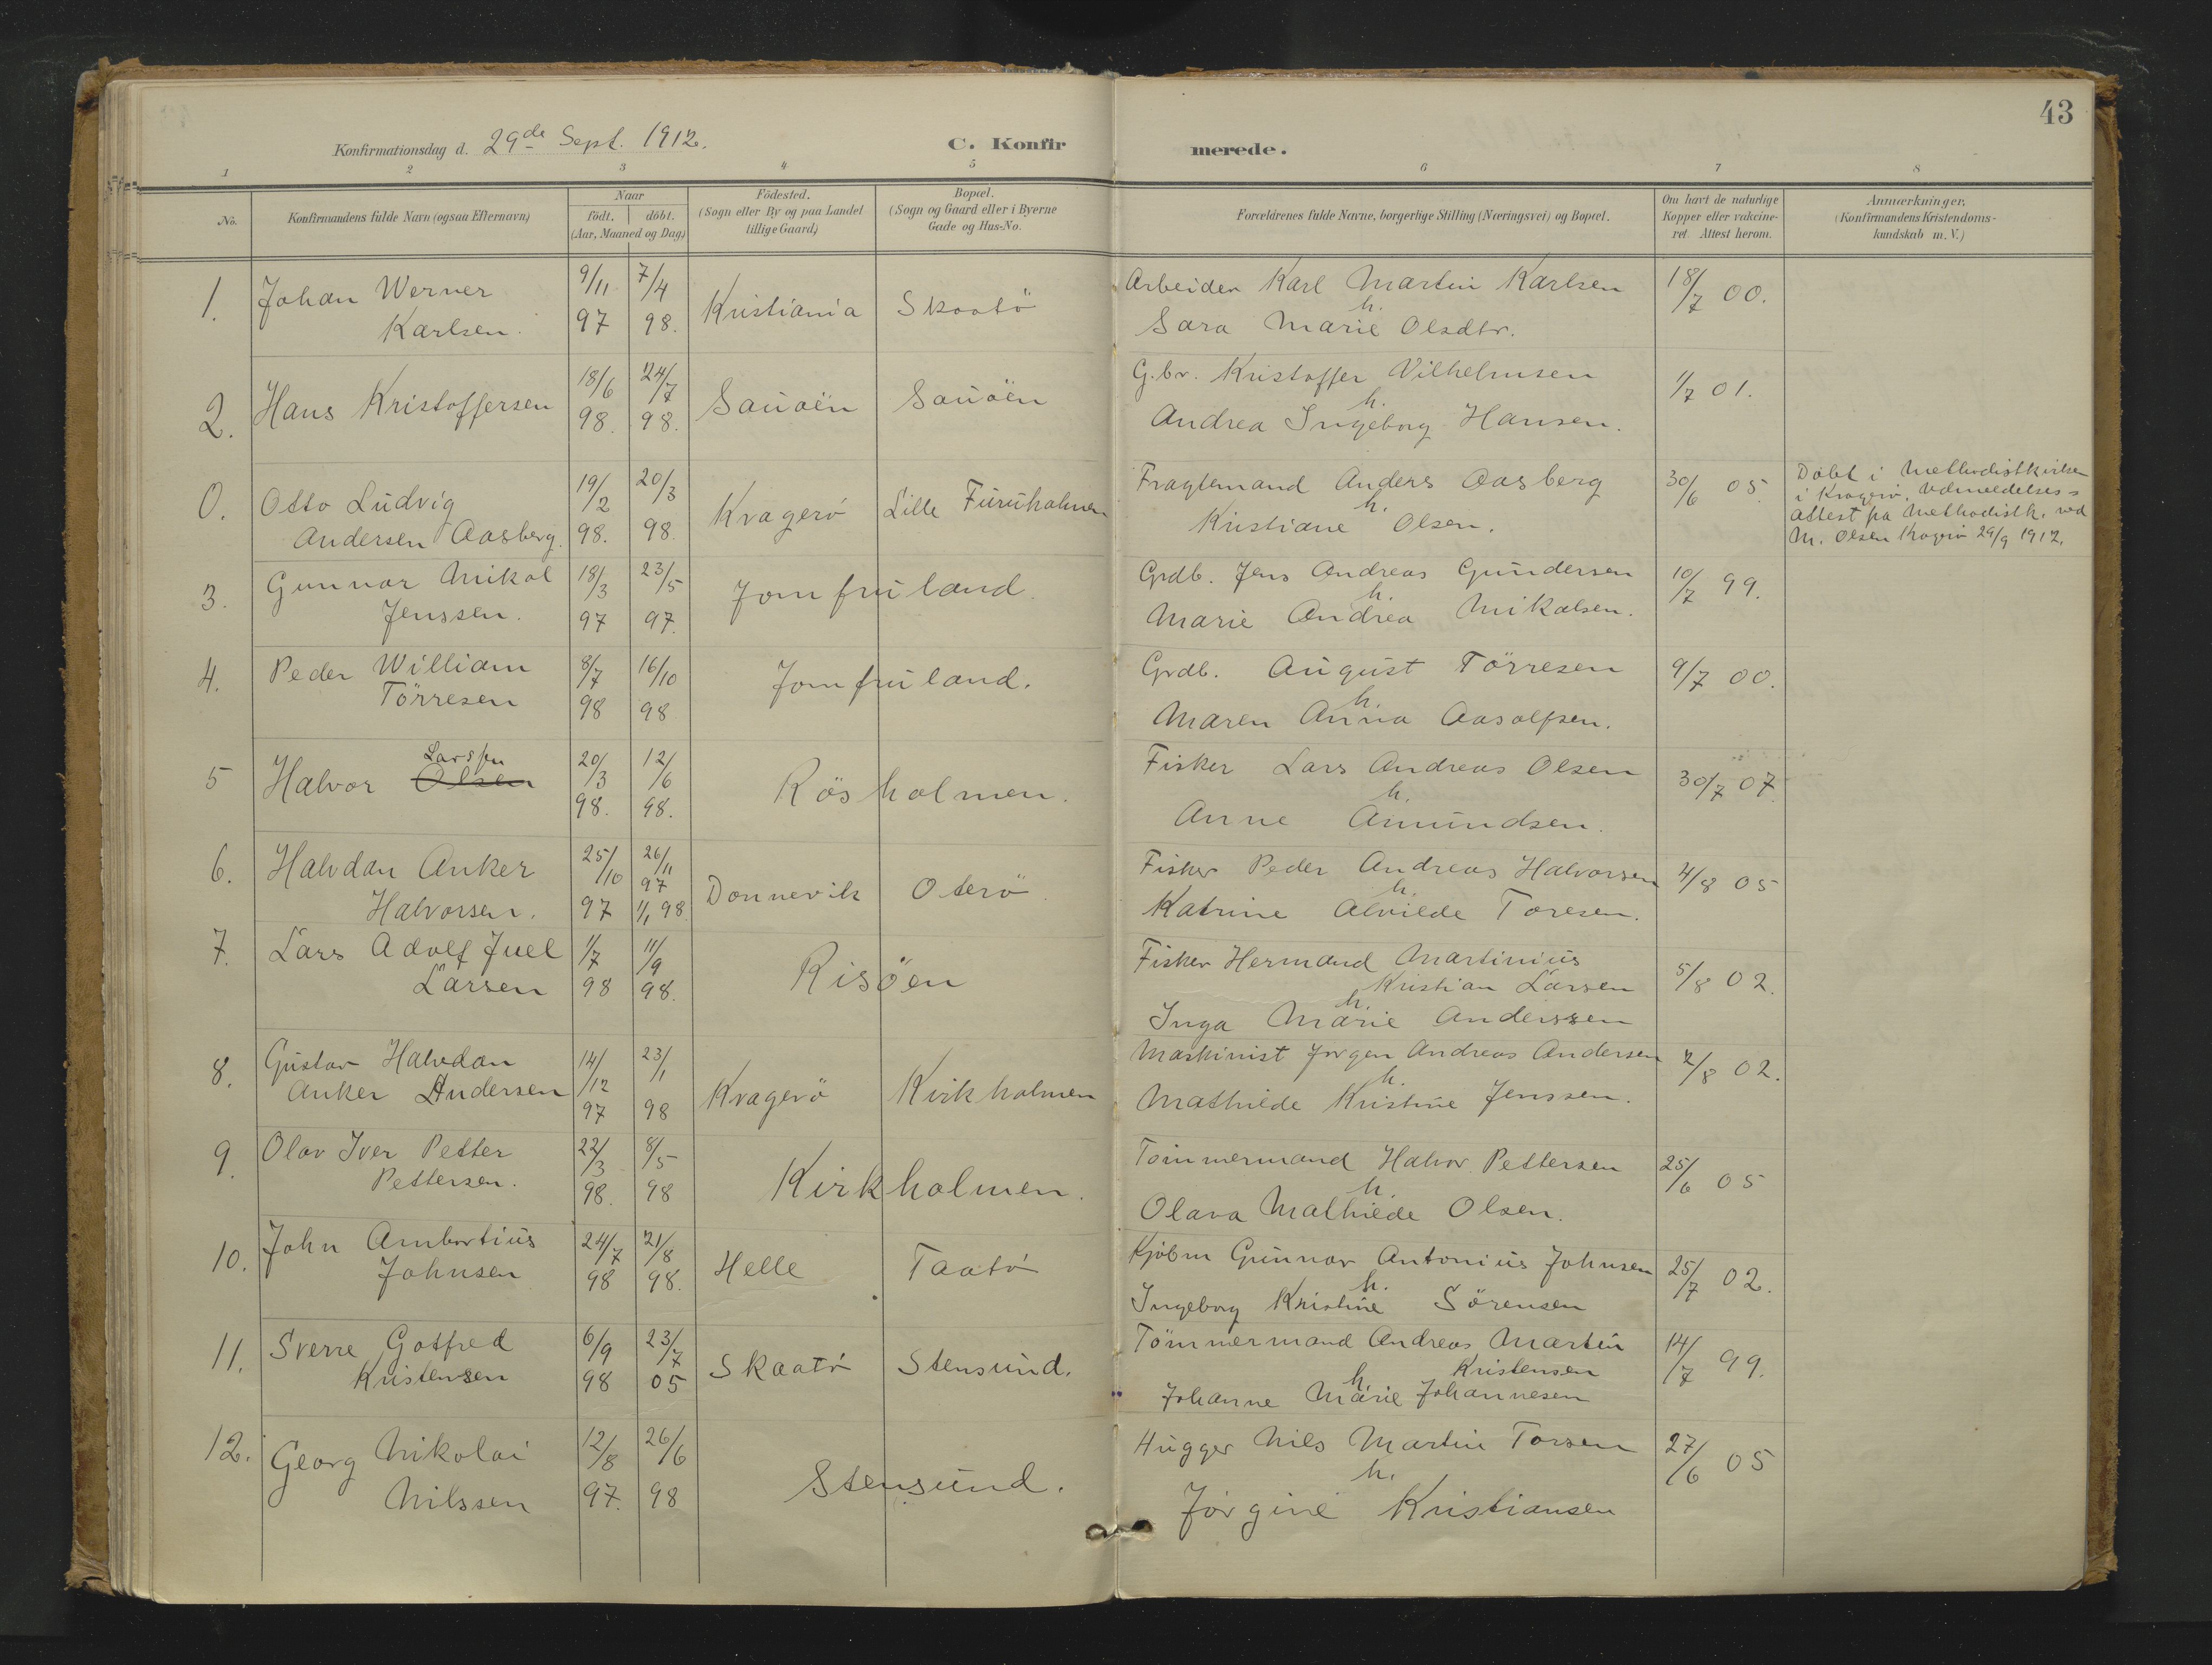 43
Konfirmationsdag d. 29de Sept. 1912.
C. Konfirmerede.
1 2 3 4 5 6 7 8
No.
Konfirmandens fulde Navn (ogsaa Efternavn)
Naar
födt. döbt.
(Aar, Maaned og Dag)
Födested.
(Sogn eller By og paa Landet
tillige Gaard)
Bopæl.
(Sogn og Gaard eller i Byerne
Gade og Hus-No.
Forældrenes fulde Navne, borgerlige Stilling (Næringsvei) og Bopæl.
Om havt de naturlige
Kopper eller vakcine-
ret. Attest herom.
Anmærkninger,
(Konfirmandens Kristendoms-
kundskab m. V.)
1. Johan Werner
Karlsen.
9/11 97
7/4 98.
Kristiania
Skaatö
Arbeider Karl Martin Karlsen
h.
Sara Marie Olsdtr.
18/7 00.
2. Hans Kristoffersen
18/6 98.
24/7 98.
Sauöen
Sauöen
G.br. Kristoffer Vilhelmsen
h.
Andrea Ingeborg Hansen.
1/7 01.
0. Otto Ludvig
Andersen Aasberg.
19/2 98.
20/3 98.
Kragerö
Lille Furuholmen
Fragtemand Anders Aasberg
h.
Kristiane Olsen.
30/6 05.
Döbt i Methodistkirken
i Kragerö. Udmeldelses=
attest fra Methodistk. ved
M. Olsen Kragerö 29/9 1912.
3. Gunnar Mikal
Jenssen.
18/3 97
23/5 97.
Jomfruland.
Grdb. Jens Andreas Gundersen
h.
Marie Andrea Mikalsen.
10/7 99.
4. Peder William
Törresen
8/7 98
16/10 98
Jomfruland.
Grdb. August Törresen
h.
Maren Anna Aasolfsen.
9/7 00.
5 Halvor Olsen
Larssen
20/3 98.
12/6 98.
Rösholmen.
Fisker Lars Andreas Olsen
h.
Anne Amundsen.
30/7 07.
6. Halvdan Anker
Halvorsen.
25/10 97
26/11 97
1/1 98
Donnevik
Oterö
Fisker Peder Andreas Halvorsen
h.
Katrine Alvilde Toresen.
4/8 05
7. Lars Adolf Juel
Larsen
1/7 98
11/9 98.
Risöen
Fisker Hermand Martinius
Kristian Larsen
h.
Inga Marie Anderssen
5/8 02.
8. Gustav Halvdan
Anker Andersen
14/12 97
23/1 98
Kragerö
Kirkholmen
Maskinist Jörgen Andreas Andersen
h.
Mathilde Kristine Jenssen.
2/8 02.
9. Olav Iver Petter
Pettersen.
22/3 98.
8/5 98
Kirkholmen.
Tömmermand Halvor Pettersen
h.
Olava Mathilde Olsen.
25/6 05
10. John Ambortius
Johnsen
24/7 98
21/8 98.
Helle
Taatö
Kjöbm Gunnar Antonius Johnsen
h.
Ingeborg Kristine Sörensen
25/7 02.
11. Sverre Gotfred
Kristensen
6/9 98
23/7 05
Skaatö
Stensund.
Tömmermand Andreas Martin
Kristensen
h.
Johanne Marie Johannesen
14/7 99.
12. Georg Nikolai
Nilssen
12/8 97.
26/6 98
Stensund.
Hugger Nils Martin Torsen
h.
Jörgine Kristiansen
27/6 05